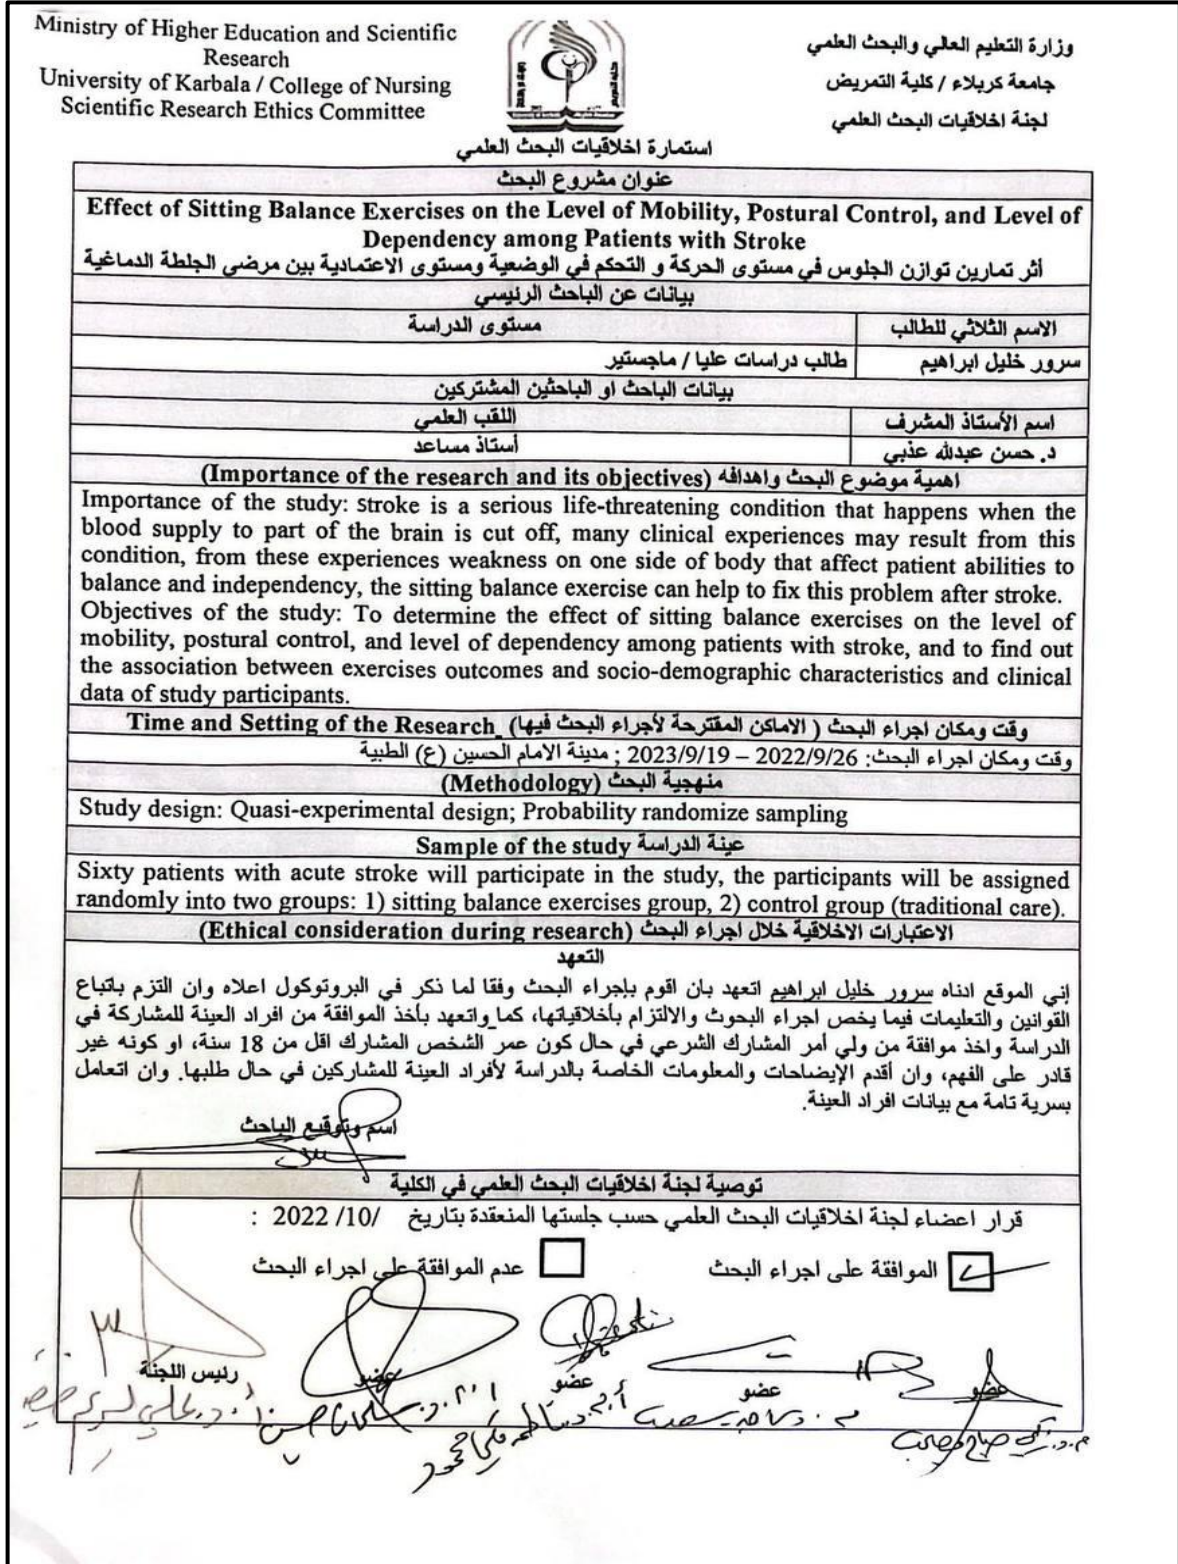 Ministry of Higher Education and Scientific
Research
University of Karbala / College of Nursing
Scientific Research Ethics Committee
وزارة التعليم العالي والبحث العلمي
جامعة كربلاء / كلية التمريض
لجنة اخلاقيات البحث العلمي
استمارة اخلاقيات البحث العلمي
عنوان مشروع البحث
Effect of Sitting Balance Exercises on the Level of Mobility, Postural Control, and Level of
Dependency among Patients with Stroke
أثر تمارين توازن الجلوس في مستوى الحركة و التحكم في الوضعية ومستوى الاعتمادية بين مرضى الجلطة الدماغية
بيانات عن الباحث الرئيسي
الاسم الثلاثي للطالب مستوى الدراسة
سرور خليل ابراهيم طالب دراسات عليا / ماجستير
بيانات الباحث او الباحثين المشتركين
اسم الأستاذ المشرف اللقب العلمي
د. حسن عبدالله عذبي أستاذ مساعد
اهمية موضوع البحث واهدافه (Importance of the research and its objectives)
Importance of the study: Stroke is a serious life-threatening condition that happens when the
blood supply to part of the brain is cut off, many clinical experiences may result from this
condition, from these experiences weakness on one side of body that affect patient abilities to
balance and independency, the sitting balance exercise can help to fix this problem after stroke.
Objectives of the study: To determine the effect of sitting balance exercises on the level of
mobility, postural control, and level of dependency among patients with stroke, and to find out
the association between exercises outcomes and socio-demographic characteristics and clinical
data of study participants.
وقت ومكان اجراء البحث ( الاماكن المقترحة لأجراء البحث فيها) Time and Setting of the Research
وقت ومكان اجراء البحث: 2022/9/26 – 2023/9/19 ; مدينة الامام الحسين (ع) الطبية
منهجية البحث (Methodology)
Study design: Quasi-experimental design; Probability randomize sampling
عينة الدراسة Sample of the study
Sixty patients with acute stroke will participate in the study, the participants will be assigned
randomly into two groups: 1) sitting balance exercises group, 2) control group (traditional care).
الاعتبارات الاخلاقية خلال اجراء البحث (Ethical consideration during research)
التعهد
إني الموقع ادناه سرور خليل ابراهيم اتعهد بان اقوم بإجراء البحث وفقا لما ذكر في البروتوكول اعلاه وان التزم باتباع
القوانين والتعليمات فيما يخص اجراء البحوث والالتزام بأخلاقياتها، كما واتعهد بأخذ الموافقة من افراد العينة للمشاركة في
الدراسة واخذ موافقة من ولي أمر المشارك الشرعي في حال كون عمر الشخص المشارك اقل من 18 سنة، او كونه غير
قادر على الفهم، وان أقدم الإيضاحات والمعلومات الخاصة بالدراسة لأفراد العينة للمشاركين في حال طلبها. وان اتعامل
بسرية تامة مع بيانات افراد العينة.
اسم وتوقيع الباحث
توصية لجنة اخلاقيات البحث العلمي في الكلية
قرار اعضاء لجنة اخلاقيات البحث العلمي حسب جلستها المنعقدة بتاريخ /10/ 2022 :
الموافقة على اجراء البحث عدم الموافقة على اجراء البحث
عضو عضو عضو عضو رئيس اللجنة